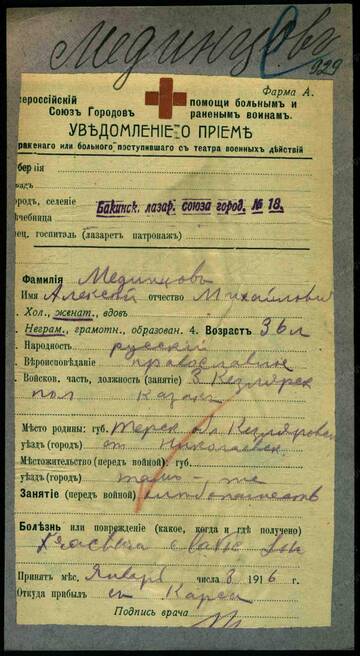 Мединцовъ
929
Форма А.
сероссійскій
Союз Городов
помощи больным и
раненым воинам.
УВѢДОМЛЕНІЕ О ПРІЕМѢ
раненаго или больного поступившаго съ театра военныхъ дѣйствій
бернія
ѣзд
ород, селеніе
Бакинск. лазар. союза город. № 18.
ечебница
ец, госпиталь (лазарет патронаж)
Фамилія Мединцовъ
Имя Алексѣй отчество Михайлович
Хол., женат., вдов
Неграм., грамотн., образован. 4. Возраст 36 л
Народность русскій
Вѣроисповѣданіе православн
Войсков. часть, должность (занятіе) 3 Кизлярск
пол Казак
Мѣсто родины: губ. Терск обл Кизляровск
уѣзд (город) ст Николаевск
Мѣстожительство (перед войной): губ.
уѣзд (город) тамъ-же
Занятіе (перед войной) хлѣбопашеств
Болѣзнь или поврежденіе (какое, когда и гдѣ получено)
Принят мѣс. Январь числа 3 1916 г.
Откуда прибыл съ Карса
Подпись врача